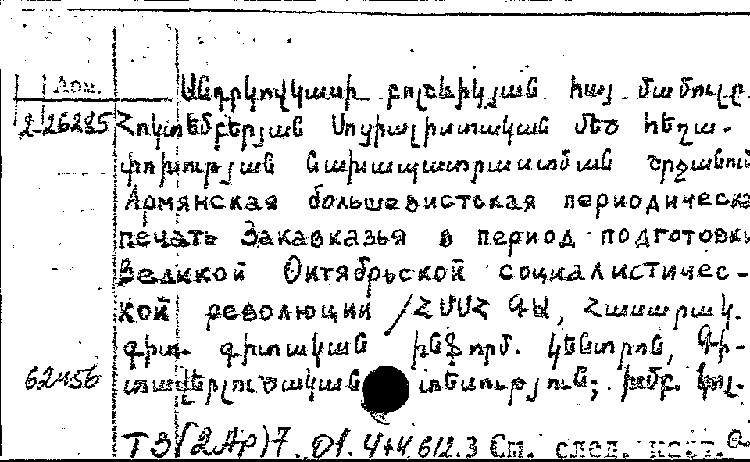 Доп. Անդրկովկասի բոլշևիկյան հայ մամուլը
2-26285 Հոկտեմբերյան Սոցիալիստական մեծ հեղա-
փոխության նախապատրաստման շրջանում
Армянская большевистская периодическая
печать Закавказья в период подготовки
Великой Октябрьской социалистичес-
кой революции /ՀՍՍՀ ԳԱ, Հասարակ.
գիտ. գիտական ինֆորմ. կենտրոն, Գի-
62456 տավերլուծական տեսություն; խմբ. կոլ.
ТЗ(2Ар)7.01.4+4612.3 См. след. карт.